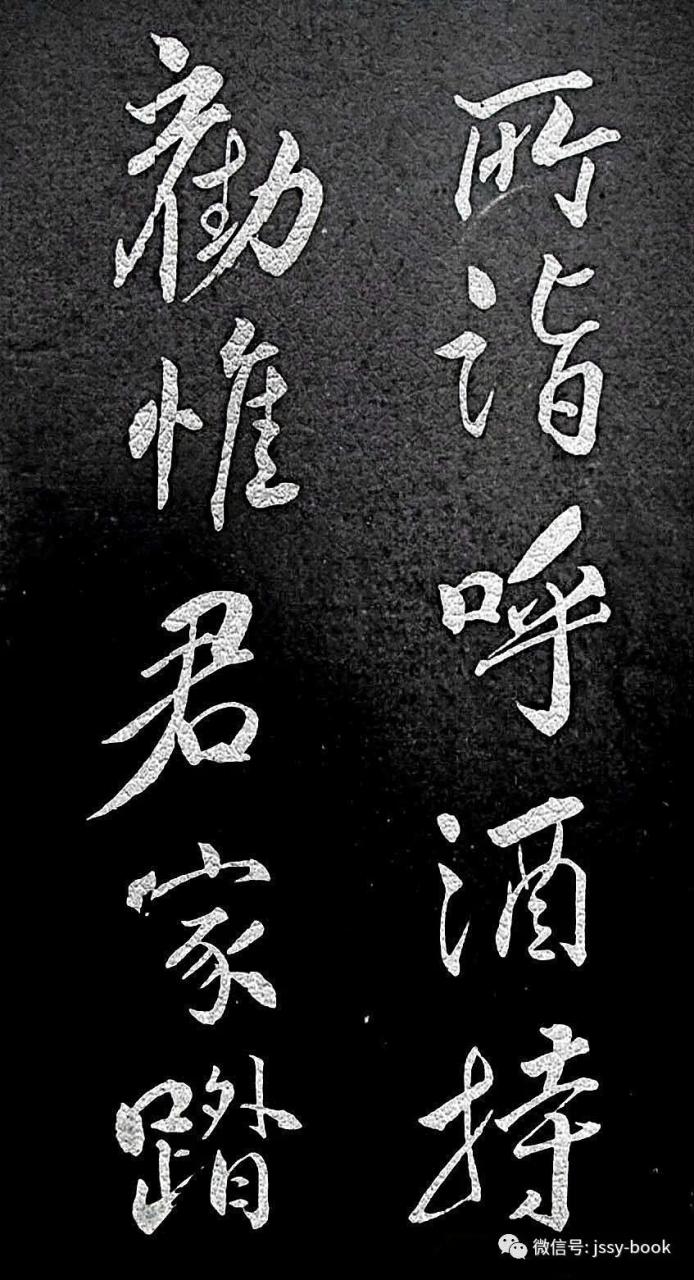 所诣呼酒持
勸惟君家踏
微信号: jssy-book